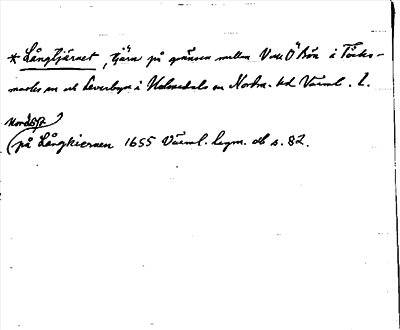 * Långtjärnet, tjärn på gränsen mellan V och Ö Bön i Töcks-
marks sn och Leverbyn i Holmedals sn Nordm. hd Värml. l.
Nordöst
på Långkiernen 1655 Värml. legm. db s. 82.